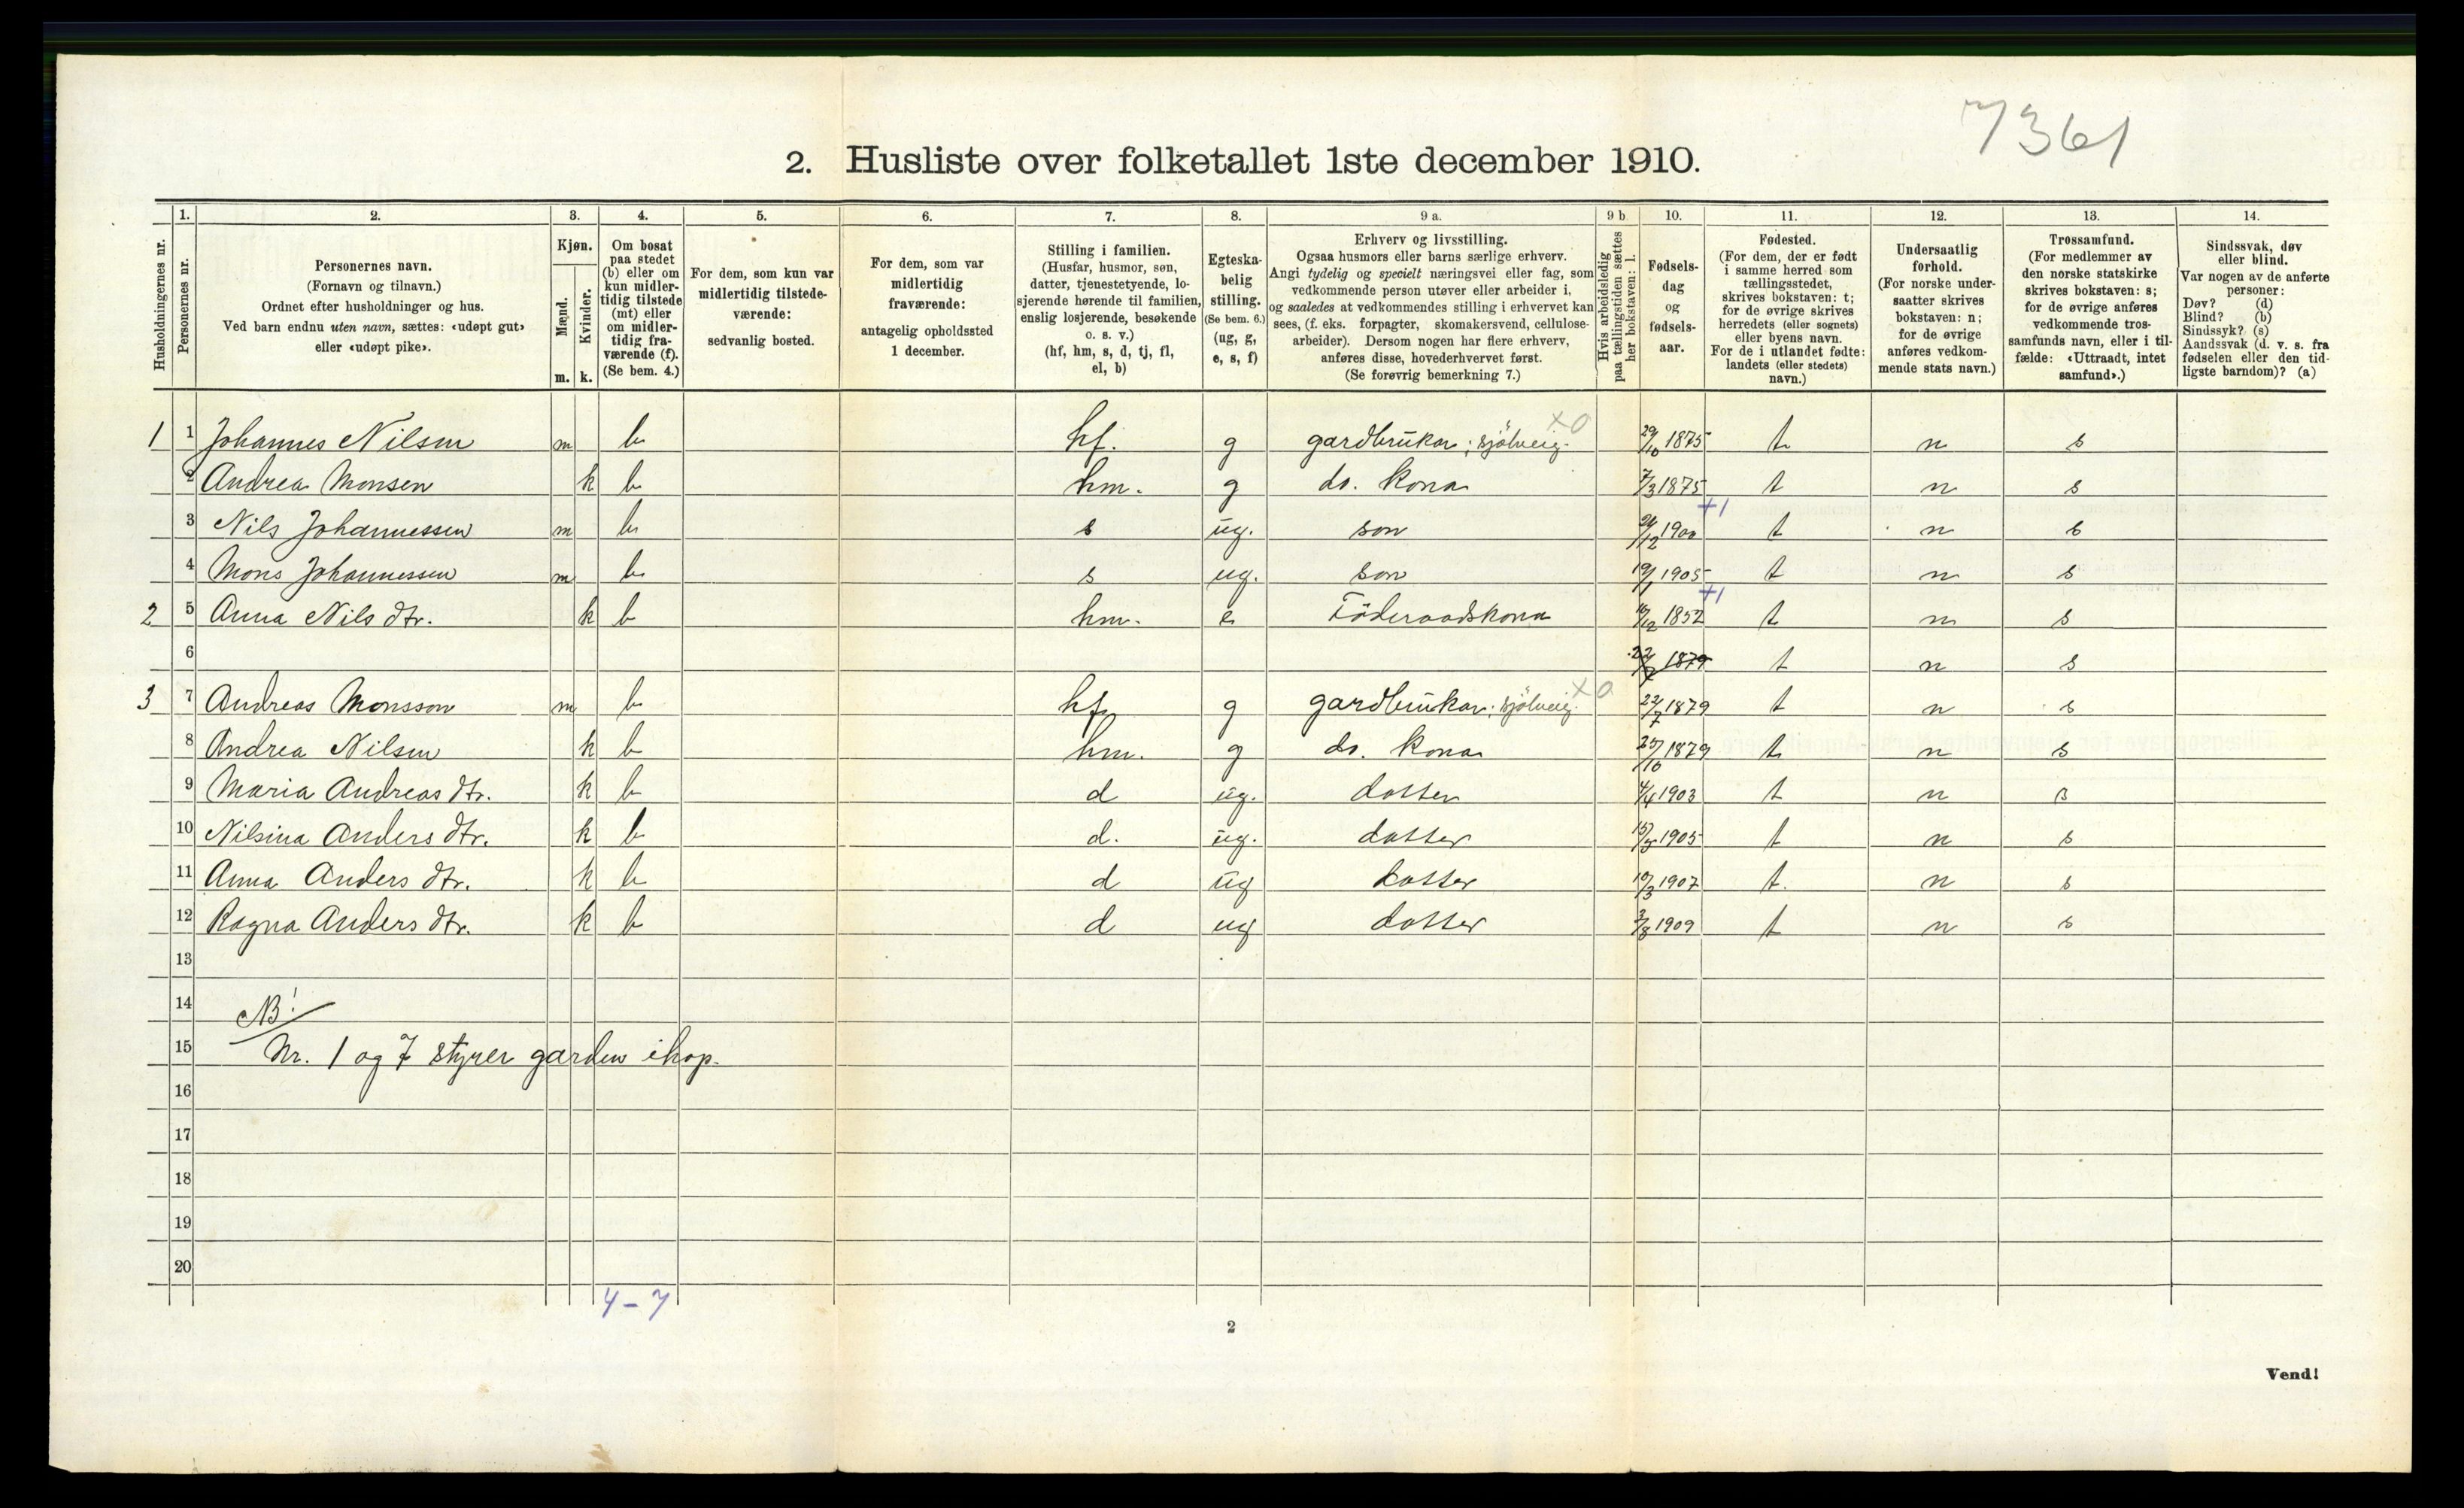 7361
2. Husliste over folketallet 1ste december 1910.
Husholdningernes nr.
1.
Personernes nr.
2.
Personernes navn.
(Fornavn og tilnavn.)
Ordnet efter husholdninger og hus.
Ved barn endnu uten navn, sættes: «udøpt gut»
eller «udøpt pike».
3.
Kjøn.
Mænd.
Kvinder.
m. k.
4.
Om bosat
paa stedet
(b) eller om
kun midler-
tidig tilstede
(mt) eller
om midler-
tidig fra-
værende (f).
(Se bem. 4.)
5.
For dem, som kun var
midlertidig tilstede-
værende:
sedvanlig bosted.
6.
For dem, som var
midlertidig
fraværende:
antagelig opholdssted
1 december.
7.
Stilling i familien.
(Husfar, husmor, søn,
datter, tjenestetyende, lo-
sjerende hørende til familien,
enslig losjerende, besøkende
o. s. v.)
(hf, hm, s, d, tj, fl,
el, b)
8.
Egteska-
belig
stilling.
(Se bem. 6.)
(ug, g,
e, s, f)
9 a.
Erhverv og livsstilling.
Ogsaa husmors eller barns særlige erhverv.
Angi tydelig og specielt næringsvei eller fag, som
vedkommende person utøver eller arbeider i,
og saaledes at vedkommendes stilling i erhvervet kan
sees, (f. eks. forpagter, skomakersvend, cellulose-
arbeider). Dersom nogen har flere erhverv,
anføres disse, hovederhvervet først.
(Se forøvrig bemerkning 7.)
9 b
Hvis arbeidsledig
paa tællingstiden sættes
her bokstaven: l.
10.
Fødsels-
dag
og
fødsels-
aar.
11.
Fødested.
(For dem, der er født
i samme herred som
tællingsstedet,
skrives bokstaven: t;
for de øvrige skrives
herredets (eller sognets)
eller byens navn.
For de i utlandet fødte:
landets (eller stedets)
navn.)
12.
Undersaatlig
forhold.
(For norske under-
saatter skrives
bokstaven: n;
for de øvrige
anføres vedkom-
mende stats navn.)
13.
Trossamfund.
(For medlemmer av
den norske statskirke
skrives bokstaven: s;
for de øvrige anføres
vedkommende tros-
samfunds navn, eller i til-
fælde: «Uttraadt, intet
samfund».)
14.
Sindssvak, døv
eller blind.
Var nogen av de anførte
personer:
Døv? (d)
Blind? (b)
Sindssyk? (s)
Aandssvak (d. v. s. fra
fødselen eller den tid-
ligste barndom)? (a)
x0
1 1 Johannes Nilsen m b hf. g gardbrukar; sjölveig. 29/10 1875 t n s
2 Andrea Monsen k b hm. g do. kona 7/3 1875 t n s
+1
3 Nils Johannessen m b s ug. son 1900 t n s
4 Mons Johannessen m b s ug. son 19/1 1905 t n s
+1
2 5 Anna Nils dtr. k b hm. e Föderaadskona 1852 t n s
6 1879 t n s
x0
3 7 Andreas Monsson m b hf g gardbrukar; sjölveig. 22/7 1879 t n s
8 Andrea Nilsen k b hm. g do. kona 25/10 1879 t n s
9 Maria Andreas dtr. k b d ug. dotter 4/4 1903 t n s
10 Nilsina Anders dtr. k b d. ug. dotter 1905 t n s
11 Anna Anders dtr. k b d ug dotter 10/3 1907 t. n s
12 Ragna Anders dtr. k b d ug dotter 3/8 1909 t n s
13
14 NB!
15 Nr. 1 og 7 styrer garden ihop.
16
17
18
19
20
4 - 7
2
Vend!